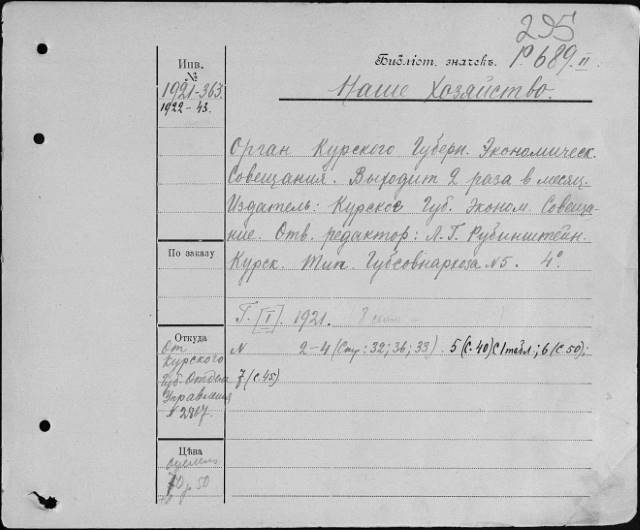 295
Библіот. значекъ. Р. 689. II
Наше Хозяйство.
Инв.
№
1921-363.
1922-43.
Орган Курского Губерн. Экономическ.
Совещания. Выходит 2 раза в месяц.
Издатель: Курское Губ. Эконом. Совеща-
ние. Отв. редактор: Л. Г. Рубинштейн.
Курск. Тип. Губсовнархоза №5. 4°
По заказу
Г. [I]. 1921.
Откуда
От
Курского
Губ. Отдела
Управления
№ 2817.
N 2-4 (Стр: 32; 36; 33). 5 (с. 40) с 1 табл; 6 (с. 50);
7 (с. 45)
Цѣна
р. 50